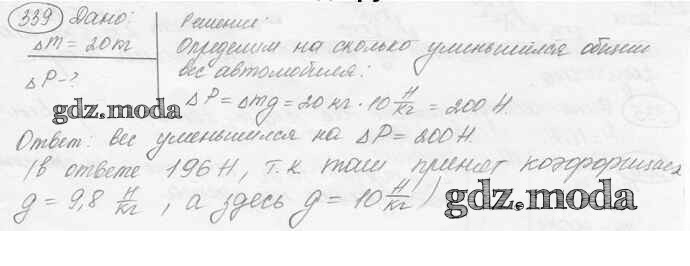 339 Дано:
Δm = 20кг
ΔP-?
Решение:
Определим на сколько уменьшился общий
вес автомобиля:
ΔP = Δmg = 20 кг · 10 Н/кг = 200 Н.
gdz.moda
Ответ: вес уменьшился на ΔP = 200Н.
(в ответе 196 Н, т.к там принят коэффициент
g = 9,8 Н/кг, а здесь g = 10 Н/кг)
gdz.moda